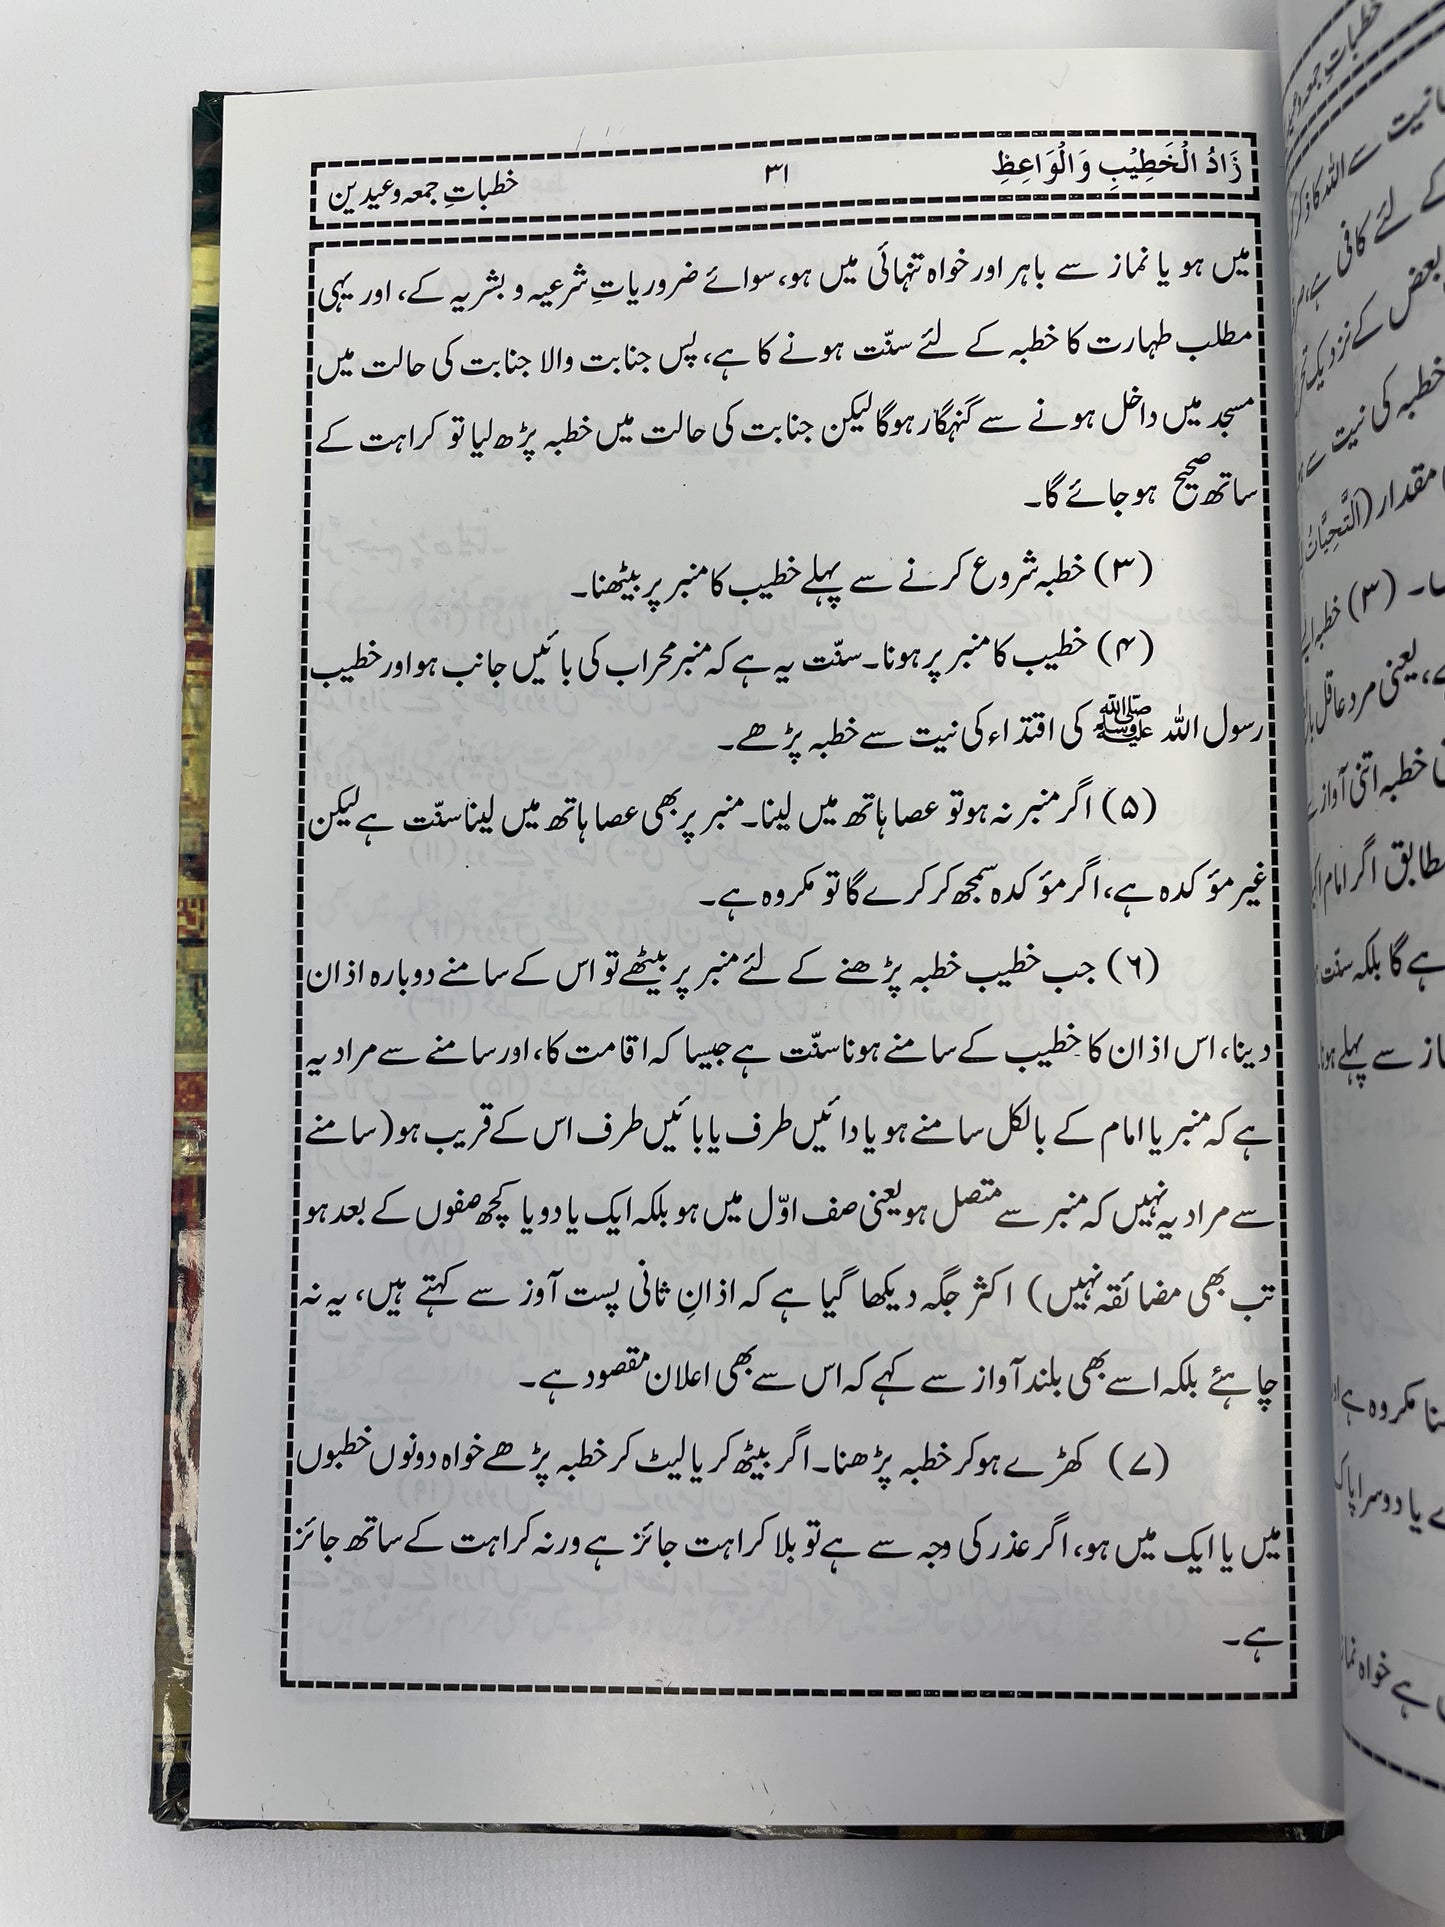 زَادُ الْخَطِيْبِ وَالْوَاعِظِ ۳۱ خطباتِ جمعہ وعیدین
میں ہو یا نماز سے باہر اور خواہ تنہائی میں ہو، سوائے ضروریاتِ شرعیہ و بشریہ کے، اور یہی
مطلب طہارت کا خطبہ کے لئے سنّت ہونے کا ہے، پس جنابت والا جنابت کی حالت میں
مسجد میں داخل ہونے سے گنہگار ہوگا لیکن جنابت کی حالت میں خطبہ پڑھ لیا تو کراہت کے
ساتھ صحیح ہو جائے گا۔
(۳) خطبہ شروع کرنے سے پہلے خطیب کا منبر پر بیٹھنا۔
(۴) خطیب کا منبر پر ہونا۔ سنّت یہ ہے کہ منبر محراب کی بائیں جانب ہو اور خطیب
رسول اللہ ﷺ کی اقتداء کی نیت سے خطبہ پڑھے۔
(۵) اگر منبر نہ ہو تو عصا ہاتھ میں لینا۔ منبر پر بھی عصا ہاتھ میں لینا سنّت ہے لیکن
غیر مؤکدہ ہے، اگر مؤکدہ سمجھ کر کرے گا تو مکروہ ہے۔
(۶) جب خطیب خطبہ پڑھنے کے لئے منبر پر بیٹھے تو اس کے سامنے دوبارہ اذان
دینا، اس اذان کا خطیب کے سامنے ہونا سنّت ہے جیسا کہ اقامت کا، اور سامنے سے مراد یہ
ہے کہ منبر یا امام کے بالکل سامنے ہو یا دائیں طرف یا بائیں طرف اس کے قریب ہو (سامنے
سے مراد یہ نہیں کہ منبر سے متصل ہو یعنی صف اوّل میں ہو بلکہ ایک یا دو یا کچھ صفوں کے بعد ہو
تب بھی مضائقہ نہیں) اکثر جگہ دیکھا گیا ہے کہ اذانِ ثانی پست آوز سے کہتے ہیں، یہ نہ
چاہئے بلکہ اسے بھی بلند آواز سے کہے کہ اس سے بھی اعلان مقصود ہے۔
(۷) کھڑے ہو کر خطبہ پڑھنا۔ اگر بیٹھ کر یا لیٹ کر خطبہ پڑھے خواہ دونوں خطبوں
میں یا ایک میں ہو، اگر عذر کی وجہ سے ہے تو بلا کراہت جائز ہے ورنہ کراہت کے ساتھ جائز
ہے۔